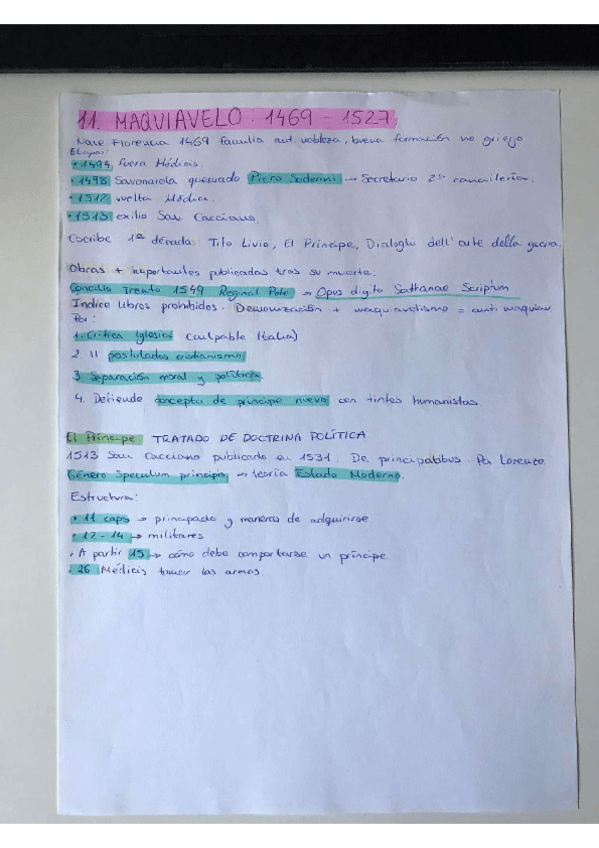 11. MAQUIAVELO: 1469 - 1527
Nace Florencia 1469 familia ant. nobleza, breve formación no griego
Etapas:
• 1494 fuera Médicis.
• 1498 Savonarola quemado Piero Soderini → Secretario 2ª cancillería.
• 1512 vuelta Médici.
• 1513 exilio San Casciano.
Escribe 1ª década Tito Livio, El Príncipe, Dialoghi dell'arte della guerra.
Obras + importantes publicadas tras su muerte.
Concilio Trento 1549 Reginal Pole → Opus digito Sathanae Scriptum
Indice libros prohibidos. Demonización + maquiavelismo = anti maquiav.
Por:
1. Crítica Iglesia (culpable Italia)
2. 11 postulados cristianismo
3 Separación moral y política.
4. Defiende concepto de príncipe nuevo con tintes humanistas.
El Príncipe TRATADO DE DOCTRINA POLÍTICA
1513 San Casciano publicado en 1531. De principatibus. Pa Lorenzo
Género Speculum principis → teoría Estado Moderno.
Estructura:
• 11 caps → principado y maneras de adquirirse
• 12-14 → militares
• A partir 15 → cómo debe comportarse un príncipe
• 26 Médicis tomar las armas.